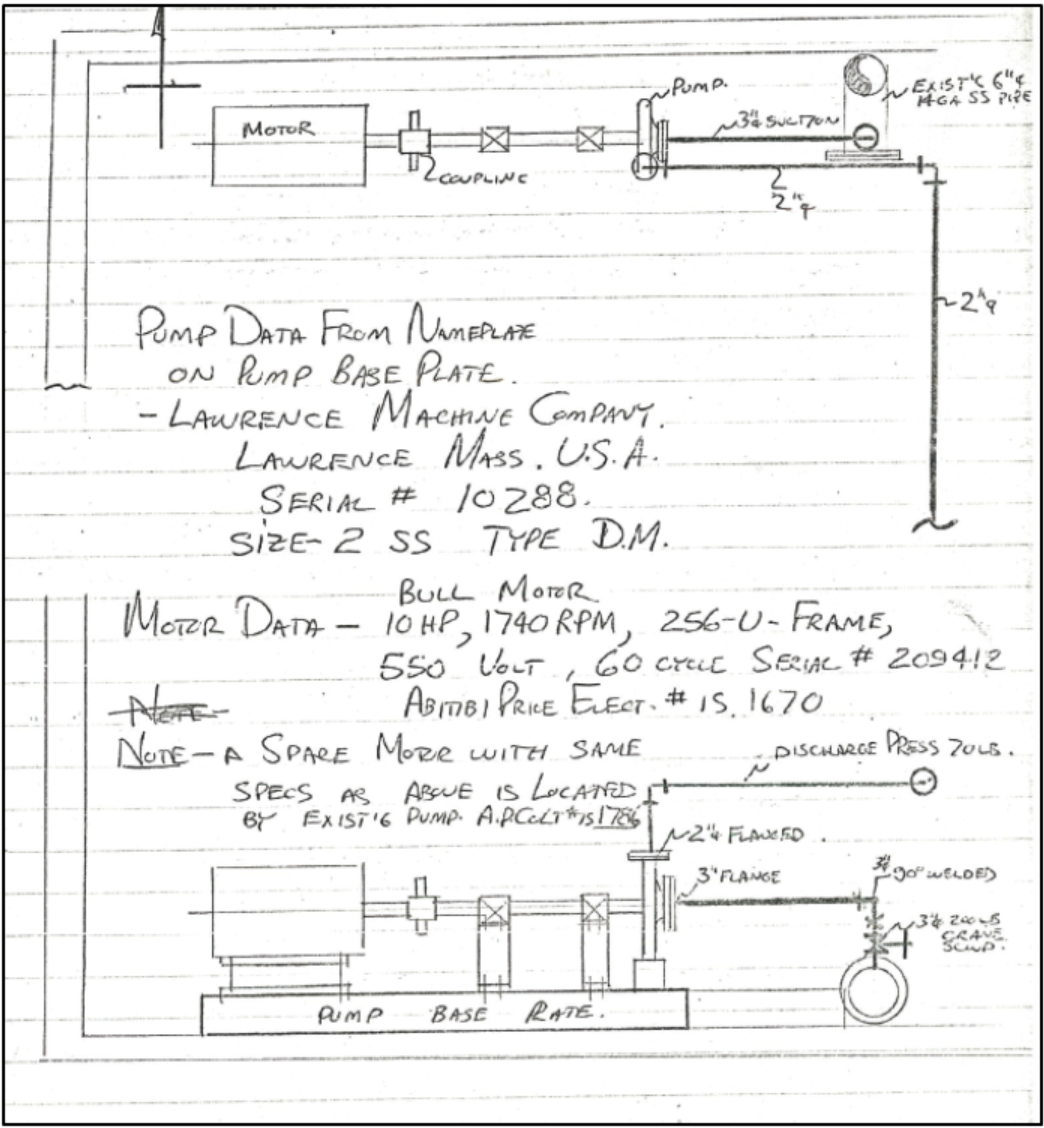 PUMP.
EXIST'G 6"φ
14GA SS PIPE
MOTOR
3"φ SUCTION
COUPLING
2"φ
2"φ
PUMP DATA FROM NAMEPLATE
ON PUMP BASE PLATE.
- LAWRENCE MACHINE COMPANY.
LAWRENCE MASS. U.S.A.
SERIAL # 10288.
SIZE- 2 SS TYPE D.M.
BULL MOTOR
MOTOR DATA - 10 HP, 1740 RPM, 256-U-FRAME,
550 VOLT, 60 CYCLE SERIAL # 209412
ABITIBI PRICE ELECT. # IS. 1670
NOTE
NOTE - A SPARE MOTOR WITH SAME
SPECS AS ABOVE IS LOCATED
BY EXIST'G PUMP. A.P. # IS 1786
DISCHARGE PRESS 70LB.
2"φ FLANGED.
3" FLANGE
3"φ 90° WELDED
3"φ 200LB
CRANE
PUMP BASE PLATE.